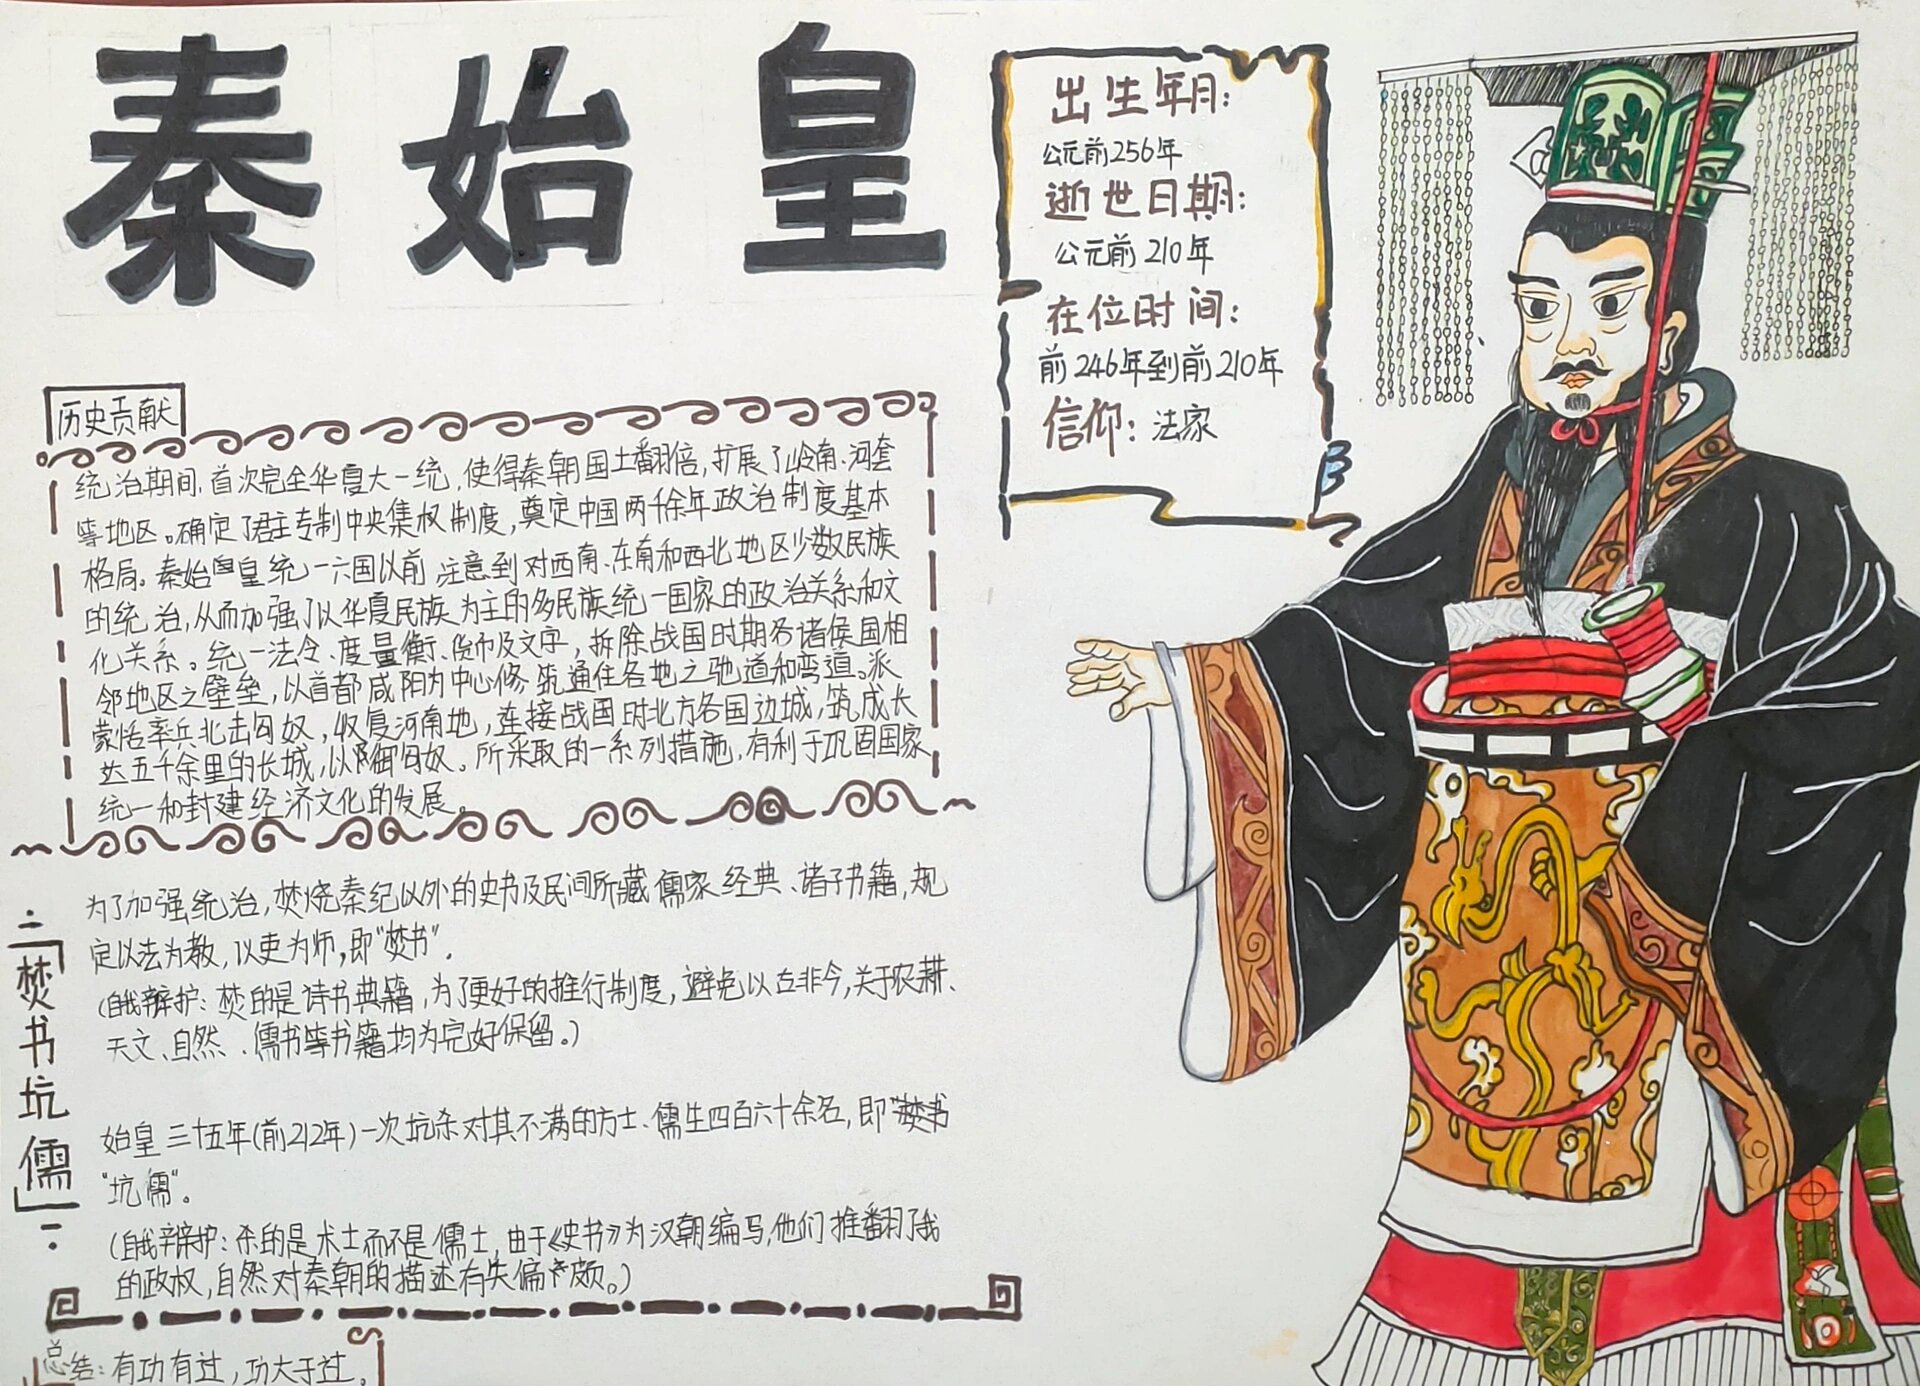 秦始皇
出生年月:
公元前256年
逝世日期:
公元前210年
在位时间:
前246年到前210年
信仰:法家
历史贡献
统治期间,首次完全华夏大一统,使得秦朝国土翻倍,扩展了岭南、河套
等地区。确定了君主专制中央集权制度,奠定中国两千余年政治制度基本
格局。秦始皇统一六国以前,注意到对西南、东南和西北地区少数民族
的统治,从而加强了以华夏民族为主的多民族统一国家的政治关系和文
化关系。统一法令、度量衡、货币及文字,拆除战国时期各诸侯国相
邻地区之壁垒,以首都咸阳为中心修筑通往各地之驰道和弯道。派
蒙恬率兵北击匈奴,收复河南地,连接战国时北方各国边城,筑成长
达五千余里的长城,以御匈奴。所采取的一系列措施,有利于巩固国家
统一和封建经济文化的发展。
「焚书坑儒」
为了加强统治,焚烧秦纪以外的史书及民间所藏儒家经典、诸子书籍,规
定以法为教,以吏为师,即“焚书”.
(自我辩护:焚的是诗书典籍,为了更好的推行制度,避免以古非今,关于农耕、
天文、自然、儒书等书籍均为完好保留。)
始皇三十五年(前212年)一次坑杀对其不满的方士、儒生四百六十余名,即“焚书
“坑儒”。
(自我辩护:杀的是术士而不是儒士,由于《史书》为汉朝编写,他们推翻了我
的政权,自然对秦朝的描述有失偏颇。)
总结:有功有过,功大于过。